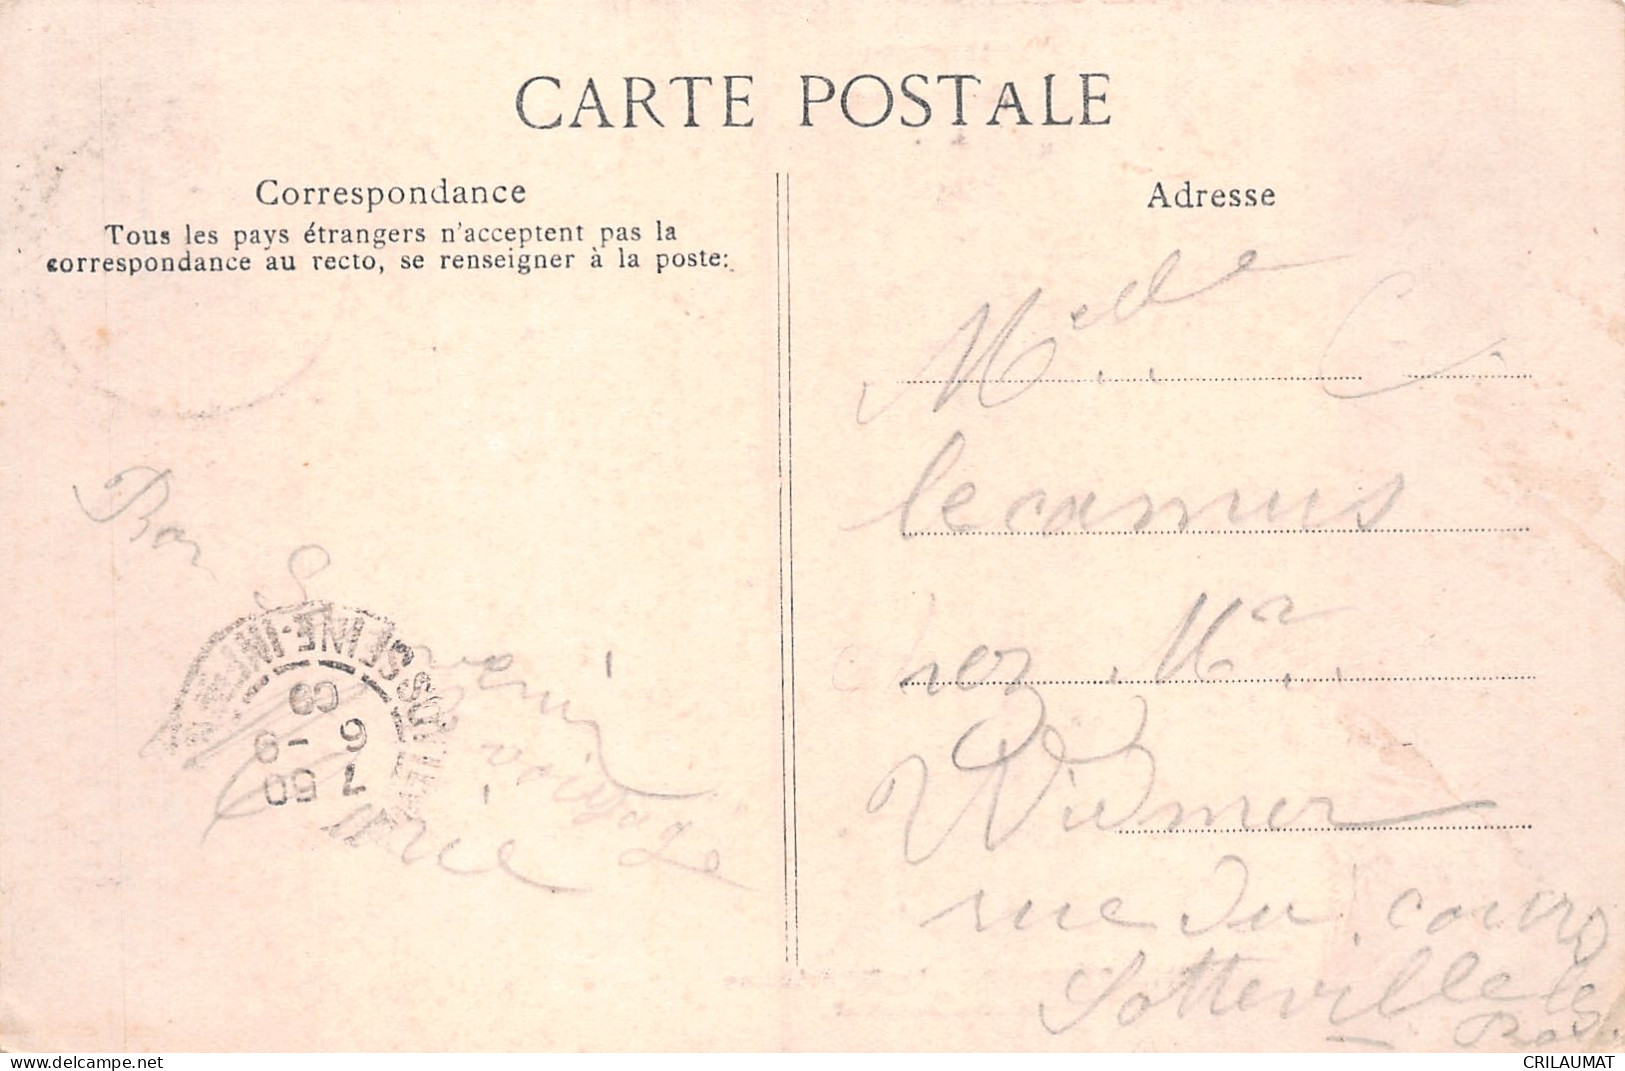 CARTE POSTALE
Correspondance
Tous les pays étrangers n'acceptent pas la
correspondance au recto, se renseigner à la poste:
Bon
Souvenir
SOTTEVILLE SEINE-INFRE
7 50
6 - 9
09
Adresse
Melle C
lecamus
chez Mr
Widmer
rue du cours
Sotteville les
Rouen
CRILAUMAT